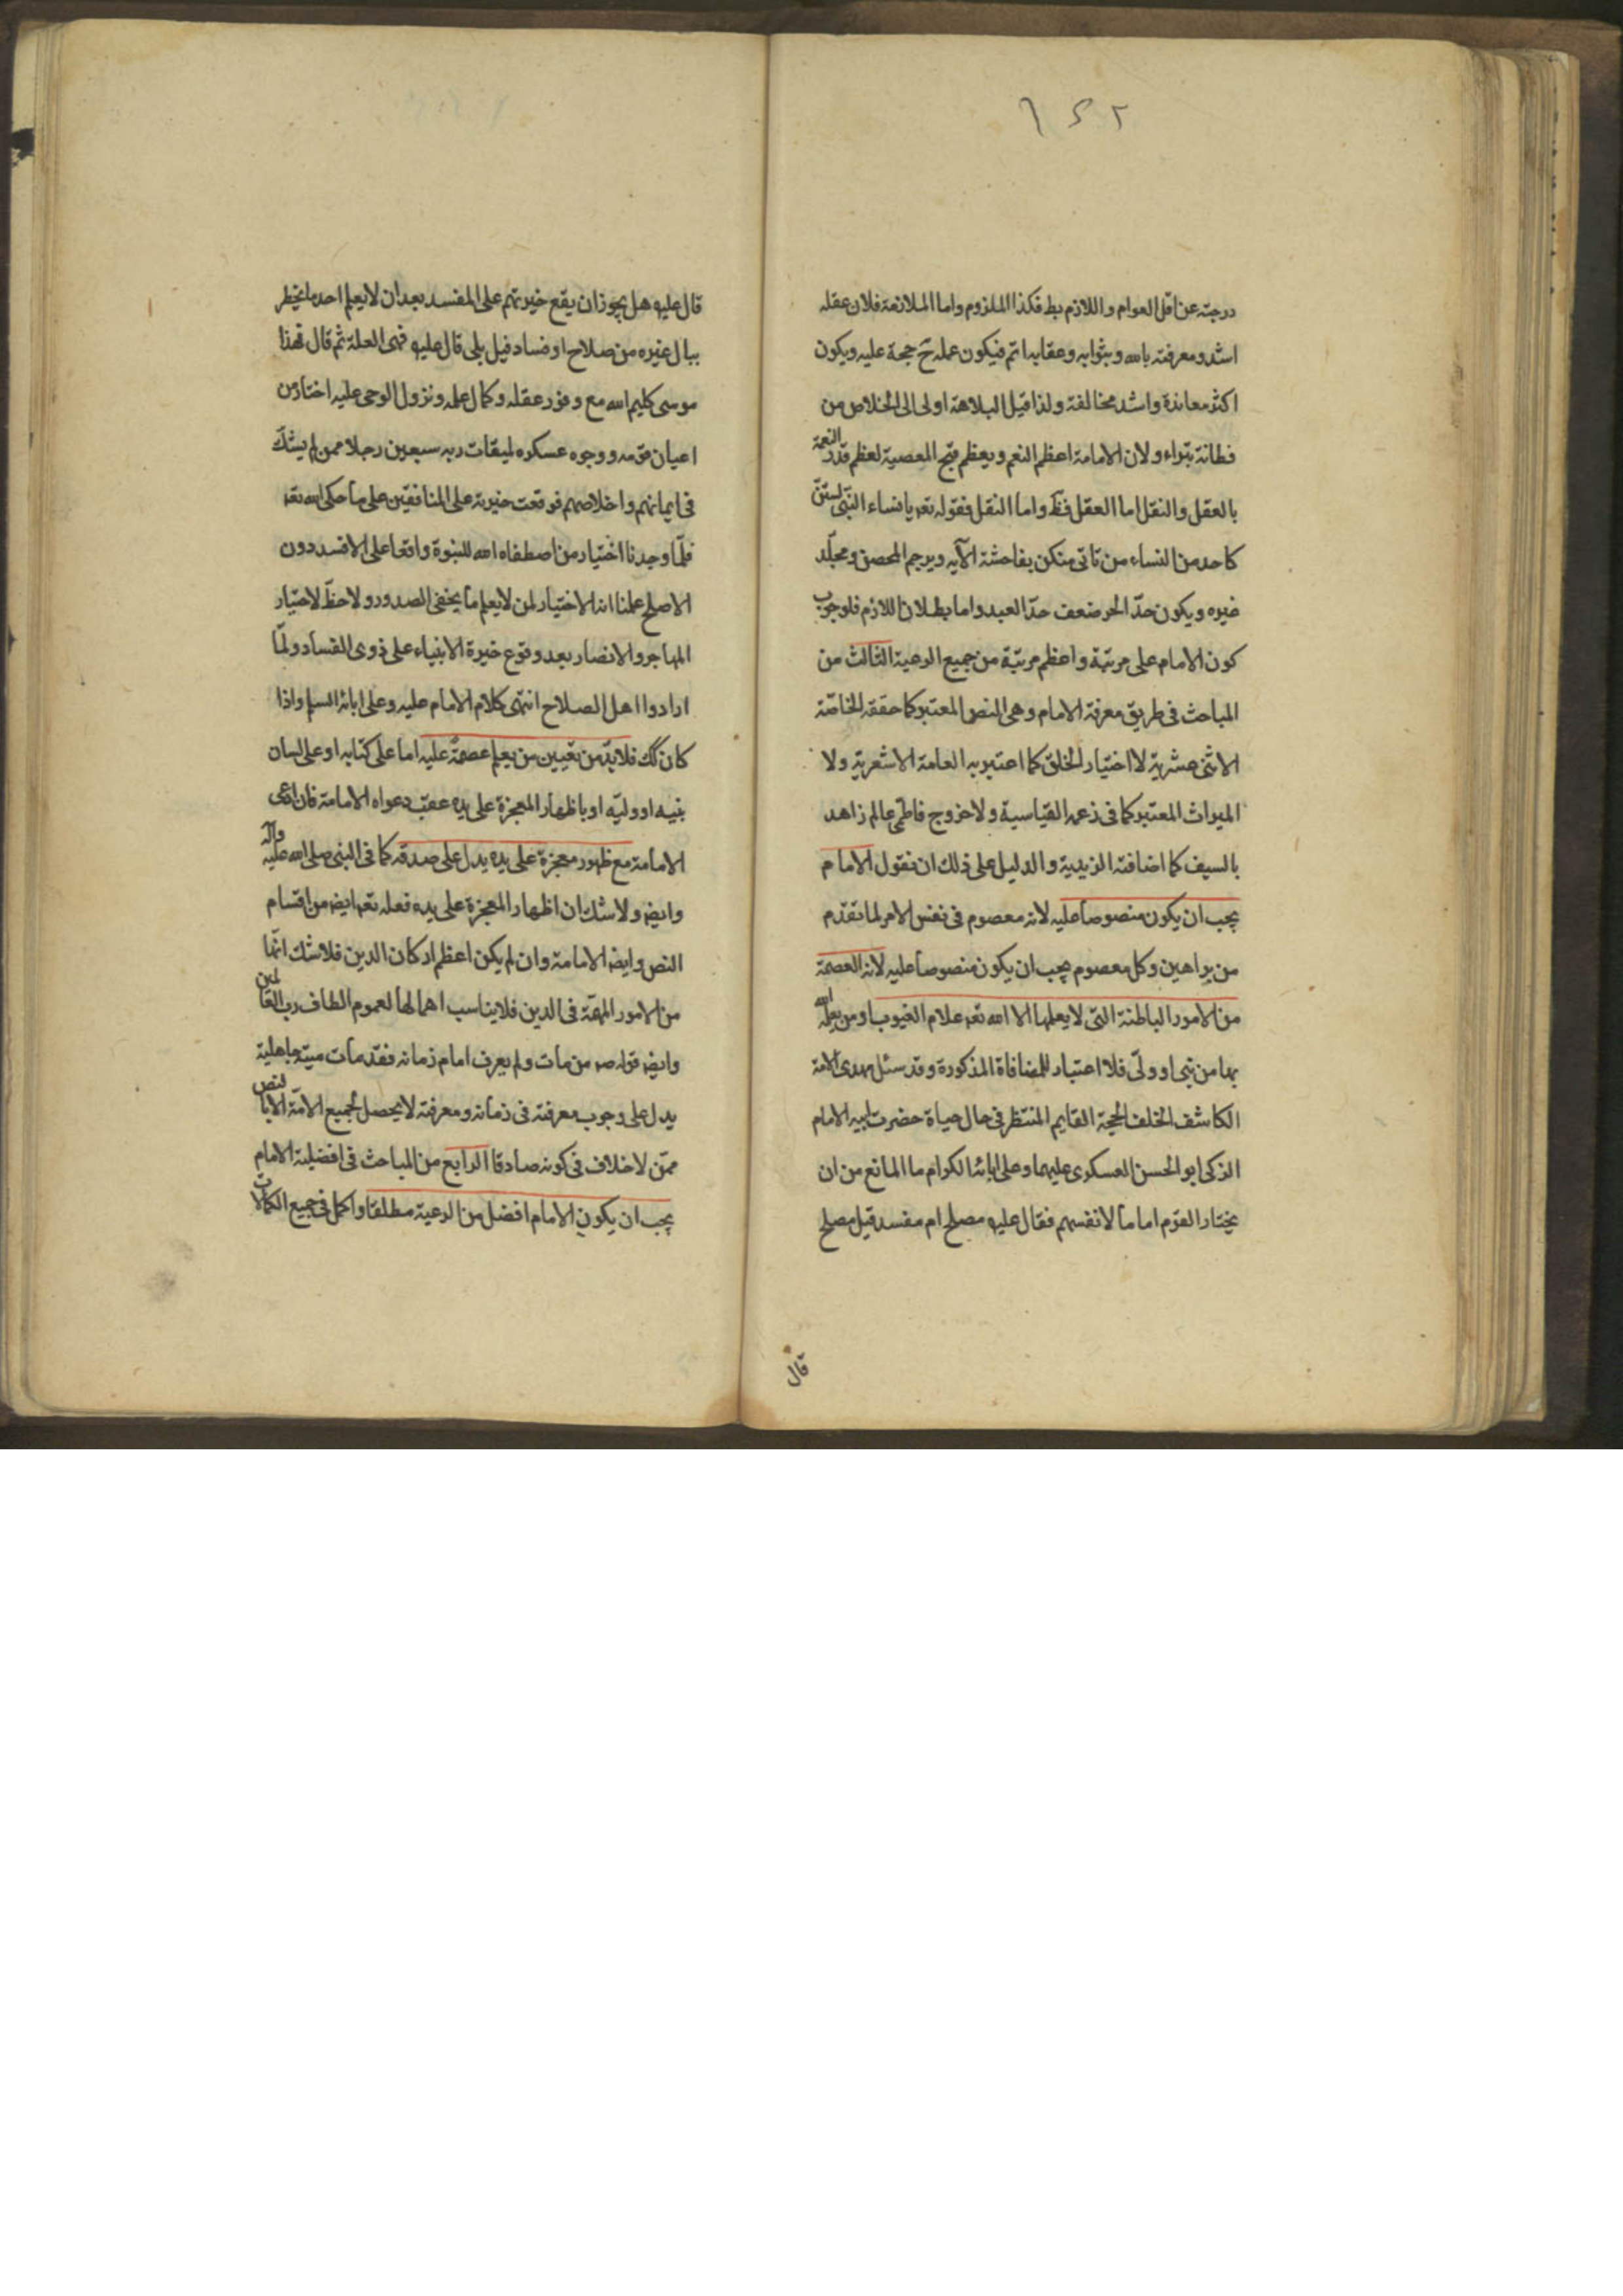 ۲ ۵ ۶
درجته عن اقل العوام واللازم بط فكذا الملزوم واما الملازمة فلان عقله
اشد ومعرفته بالله وبثوابه وعقابه اتم فيكون عمله ح حجة عليه ويكون
اكثر معاندة واشد مخالفة ولذا قيل البلاهة اولى الى الخلاص من
فطانة بتراء ولان الامامة اعظم النعم ويعظم قبح المعصية لعظم قدر النعمة
بالعقل والنقل اما العقل فظ واما النقل فقوله تعه يا نساء النبى لستن
كاحد من النساء من تاتى منكن بفاحشة الآيه ويرجم المحصن ومجلد
غيره ويكون حد الحر ضعف حد العبد واما بطلان اللازم فلوجوب
كون الامام على مرتبة واعظم مرتبة من جميع الرعية الثالث من
المباحث فى طريق معرفة الامام وهى النص المعتبر كما حققه الخاصة
الاثنى عشرية لا اختيار الخلق كما اعتبر به العامة الاشعرية ولا
الميراث المعتبر كما فى زعم القياسية ولا خروج فاطمى عالم زاهد
بالسيف كما اضافته الزيدية والدليل على ذلك ان نقول الامام
يجب ان يكون منصوصا عليه لانه معصوم فى نفس الامر لما تقدم
من براهين وكل معصوم يجب ان يكون منصوصا عليه لانه العصمة
من الامور الباطنة التى لا يعلمها الا الله تعه علام الغيوب او من يعلمه الله
بها من نبى او ولى فلا اعتبار للمضافاة المذكورة وقد سئل مهدى الامة
الكاشف الخلف الحجة القايم المنتظر فى حال حياة حضرت ابيه الامام
الزكى ابو الحسن العسكرى عليهما وعلى ابائه الكرام ما المانع من ان
يختار القوم اماما لانفسهم فقال عليه مصلح ام مفسد قيل مصلح
قال
قال عليه هل يجوز ان يقع خيرتهم على المفسد بعد ان لا يعلم احد ما يخطر
ببال غيره من صلاح او فساد قيل بلى قال عليه فهى العلة ثم قال فهذا
موسى كليم الله مع وفور عقله وكمال علمه ونزول الوحى عليه اختار من
اعيان قومه ووجوه عسكره لميقات ربه سبعين رجلا ممن لم يشك
فى ايمانهم واخلاصهم فوقعت خيرته على المنافقين على ما حكى الله تعه
فلما وجدنا اختيار من اصطفاه الله للنبوة واقعا على الافسد دون
الاصلح علمنا انه لا اختيار لمن لا يعلم ما يخفى الصدور ولا حظ لاختيار
المهاجر والانصار بعد وقوع خيرة الانبياء على ذوى الفساد ولما
ارادوا اهل الصلاح انتهى كلام الامام عليه وعلى ابائه السلم واذا
كان كك فلا بد من تعيين من يعلم عصمة عليه اما على كتابه او على لسان
نبيه او وليه او باظهار المعجزة على يده عقيب دعواه الامامة فان ادعى
الامامة مع ظهور معجزة على يده يدل على صدقه كما فى النبى صلى الله عليه وآله
وايضه ولا شك ان اظهار المعجزة على يده فعله تعه ايضه من اقسام
النص وايضه الامامة وان لم يكن اعظم اركان الدين فلا شك انها
من الامور المهمة فى الدين فلا يناسب اهمالها لعموم الطاف رب العالمين
وايضه قوله صه من مات ولم يعرف امام زمانه فقد مات ميتة جاهلية
يدل على وجوب معرفته فى زمانه ومعرفته لا يحصل لجميع الامة الا بالنص
ممن لا خلاف فى كونه صادقا الرابع من المباحث فى افضلية الامام
يجب ان يكون الامام افضل من الرعية مطلقا واكمل فى جميع الكمالات